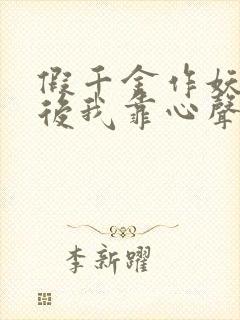 假千金作妖
後我靠心聲
李新躍